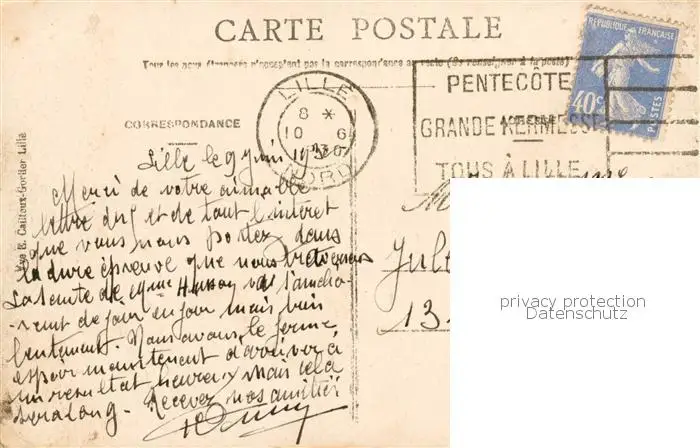 CARTE POSTALE
Tous les pays étrangers n'acceptent pas la correspondance au recto (Se renseigner à la poste)
REPUBLIQUE FRANÇAISE
40c
POSTES
LILLE
8 *
10 6
30
NORD
PENTECÔTE
GRANDE KERMESSE
TOUS À LILLE
CORRESPONDANCE
ADRESSE
E. Cailteux-Gortier Lille
Lille le 9 juin 1930
Merci de votre aimable
lettre du 5 et de tout l'intérêt
que vous nous portez dans
la dure épreuve que nous traversons
La santé de Mme va s'amélio-
-rant de jour en jour mais bien
lentement. Nous avons le ferme
espoir maintenant d'arriver à
un résultat heureux mais cela
sera long - Recevez nos amitiés
M
Jul
13
privacy protection
Datenschutz